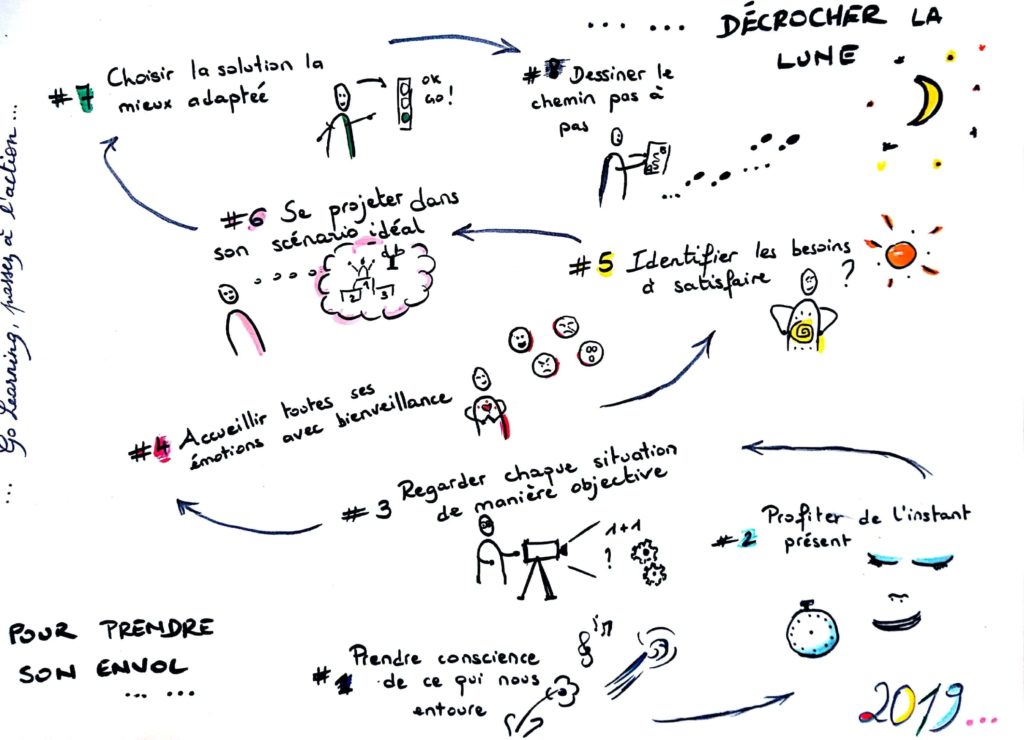 ... ... DÉCROCHER LA
LUNE
#7 Choisir la solution la
mieux adaptée
OK
GO!
#8 Dessiner le
chemin pas à
pas
#6 Se projeter dans
son scénario idéal
2 1 3
#5 Identifier les besoins
à satisfaire
?
#4 Accueillir toutes ses
émotions avec bienveillance
#3 Regarder chaque situation
de manière objective
1+1
?
#2 Profiter de l'instant
présent
#1 Prendre conscience
de ce qui nous
entoure
POUR PRENDRE
SON ENVOL
... ...
2019...
... Go Learning, passez à l'action...